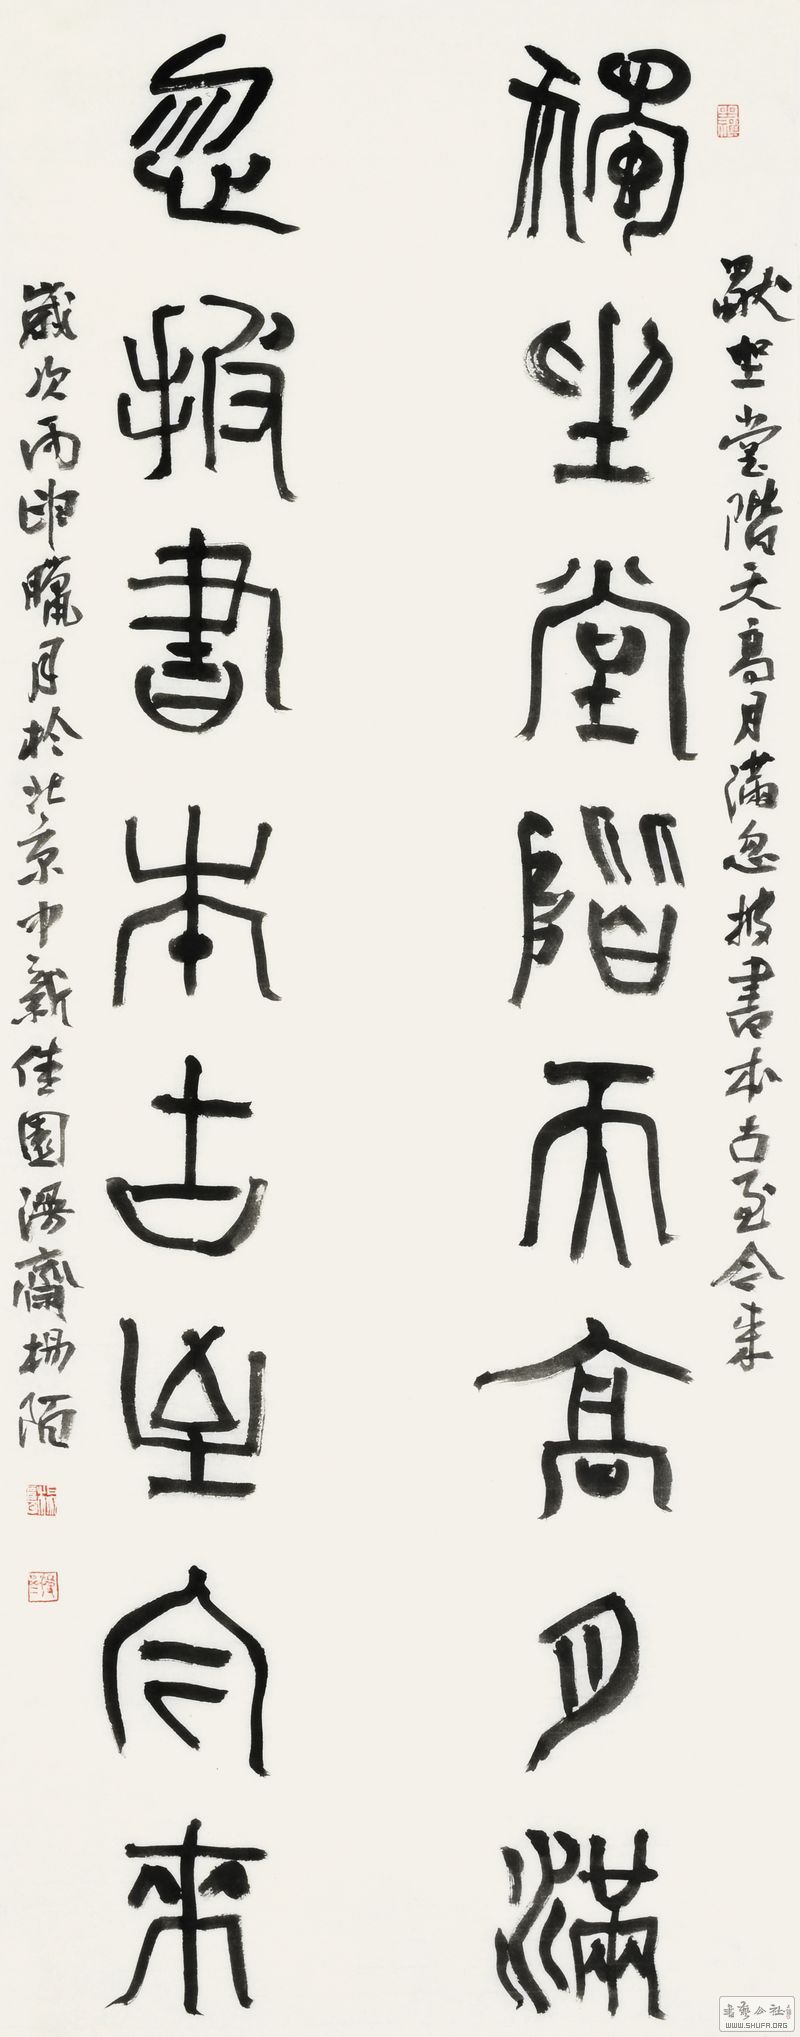 獨坐堂階天高月滿
忽披書本古至今來
獨坐堂階天高月滿忽披書本古至今來
歲次丙申臘月於北京中新佳園漫齋楊陌
書藝公社
WWW.SHUFA.ORG